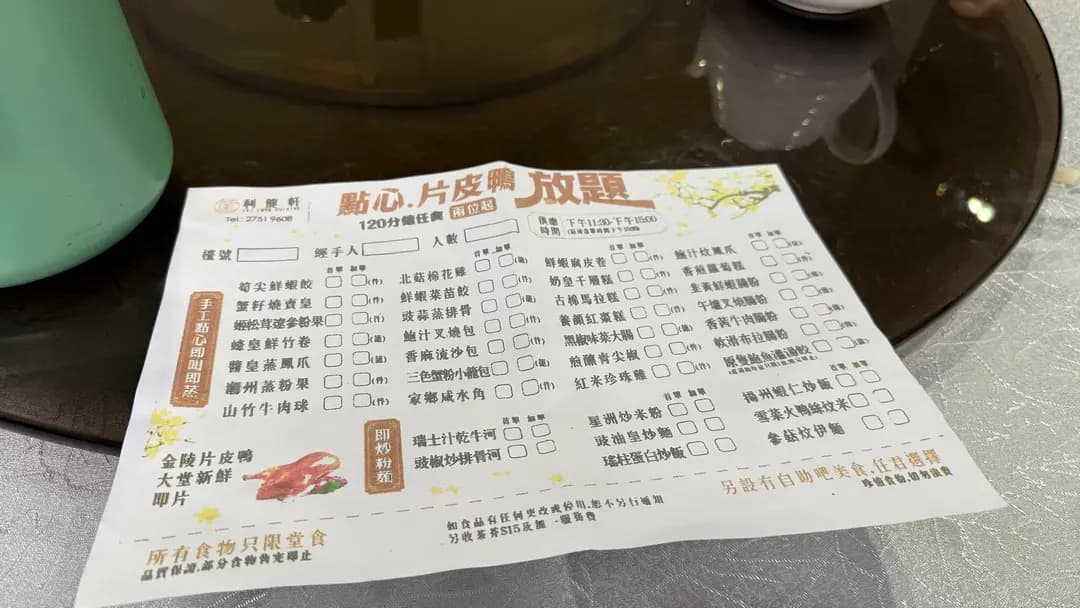 利龍軒
Tel: 2751 9608
點心.片皮鴨 放題
120分鐘任食 兩位起
供應時間 下午11:30-下午15:00
檯號
經手人
人數
手工點心即叫即蒸
首單 加單
筍尖鮮蝦餃 (件)
蟹籽燒賣皇 (件)
姬松茸遼參粉果 (件)
蜂皇鮮竹卷
醬皇蒸鳳爪
潮州蒸粉果 (件)
山竹牛肉球 (件)
首單 加單
北菇棉花雞
鮮蝦菜苗餃
豉蒜蒸排骨
鮑汁叉燒包
香麻流沙包
三色蟹粉小籠包
家鄉咸水角 (件)
首單 加單
鮮蝦腐皮卷 (件)
奶皇千層糕
古樵馬拉糕
養顏紅棗糕
黑椒味菜大腸
煎釀青尖椒 (件)
紅米珍珠雞 (件)
首單 加單
鮑汁炆鳳爪
香煎蘿蔔糕
韭黃鮮蝦腸粉
午爐叉燒腸粉
香茜牛肉腸粉
軟滑布拉腸粉
原隻鮑魚灌湯餃
金陵片皮鴨
大堂新鮮
即片
即炒粉麵
首單 加單
瑞士汁乾牛河
豉椒炒排骨河
首單 加單
星洲炒米粉
豉油皇炒麵
瑤柱蛋白炒飯
首單 加單
揚州蝦仁炒飯
雪菜火鴨絲炆米
參菇炆伊麵
所有食物只限堂食
品質保證.部分食物售完即止
如食品有任何更改或停用,恕不另行通知
另收茶芥$15及加一服務費
另設有自助吧美食,任君選擇
珍惜食物,切勿浪費